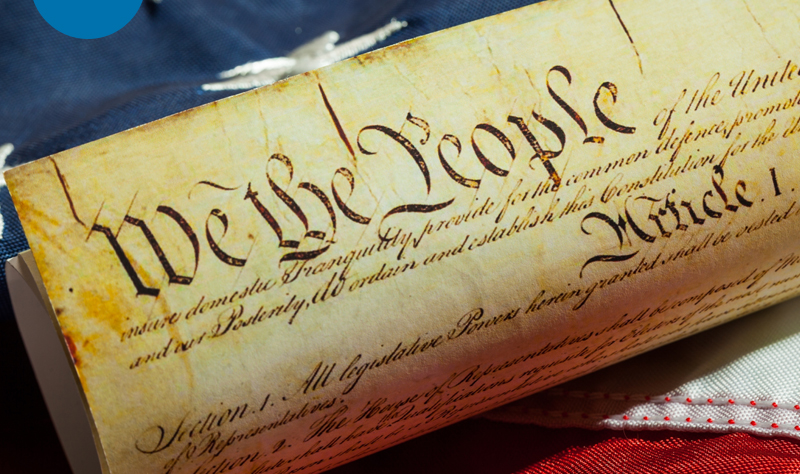 We the People of the Unite
insure domestic Tranquility, provide for the common defence, promot
and our Posterity, do ordain and establish this Constitution for the
Article. I.
Section. 1. All legislative Powers herein granted shall be vested
of Representatives.
Section. 2. The House of Representatives shall be composed of